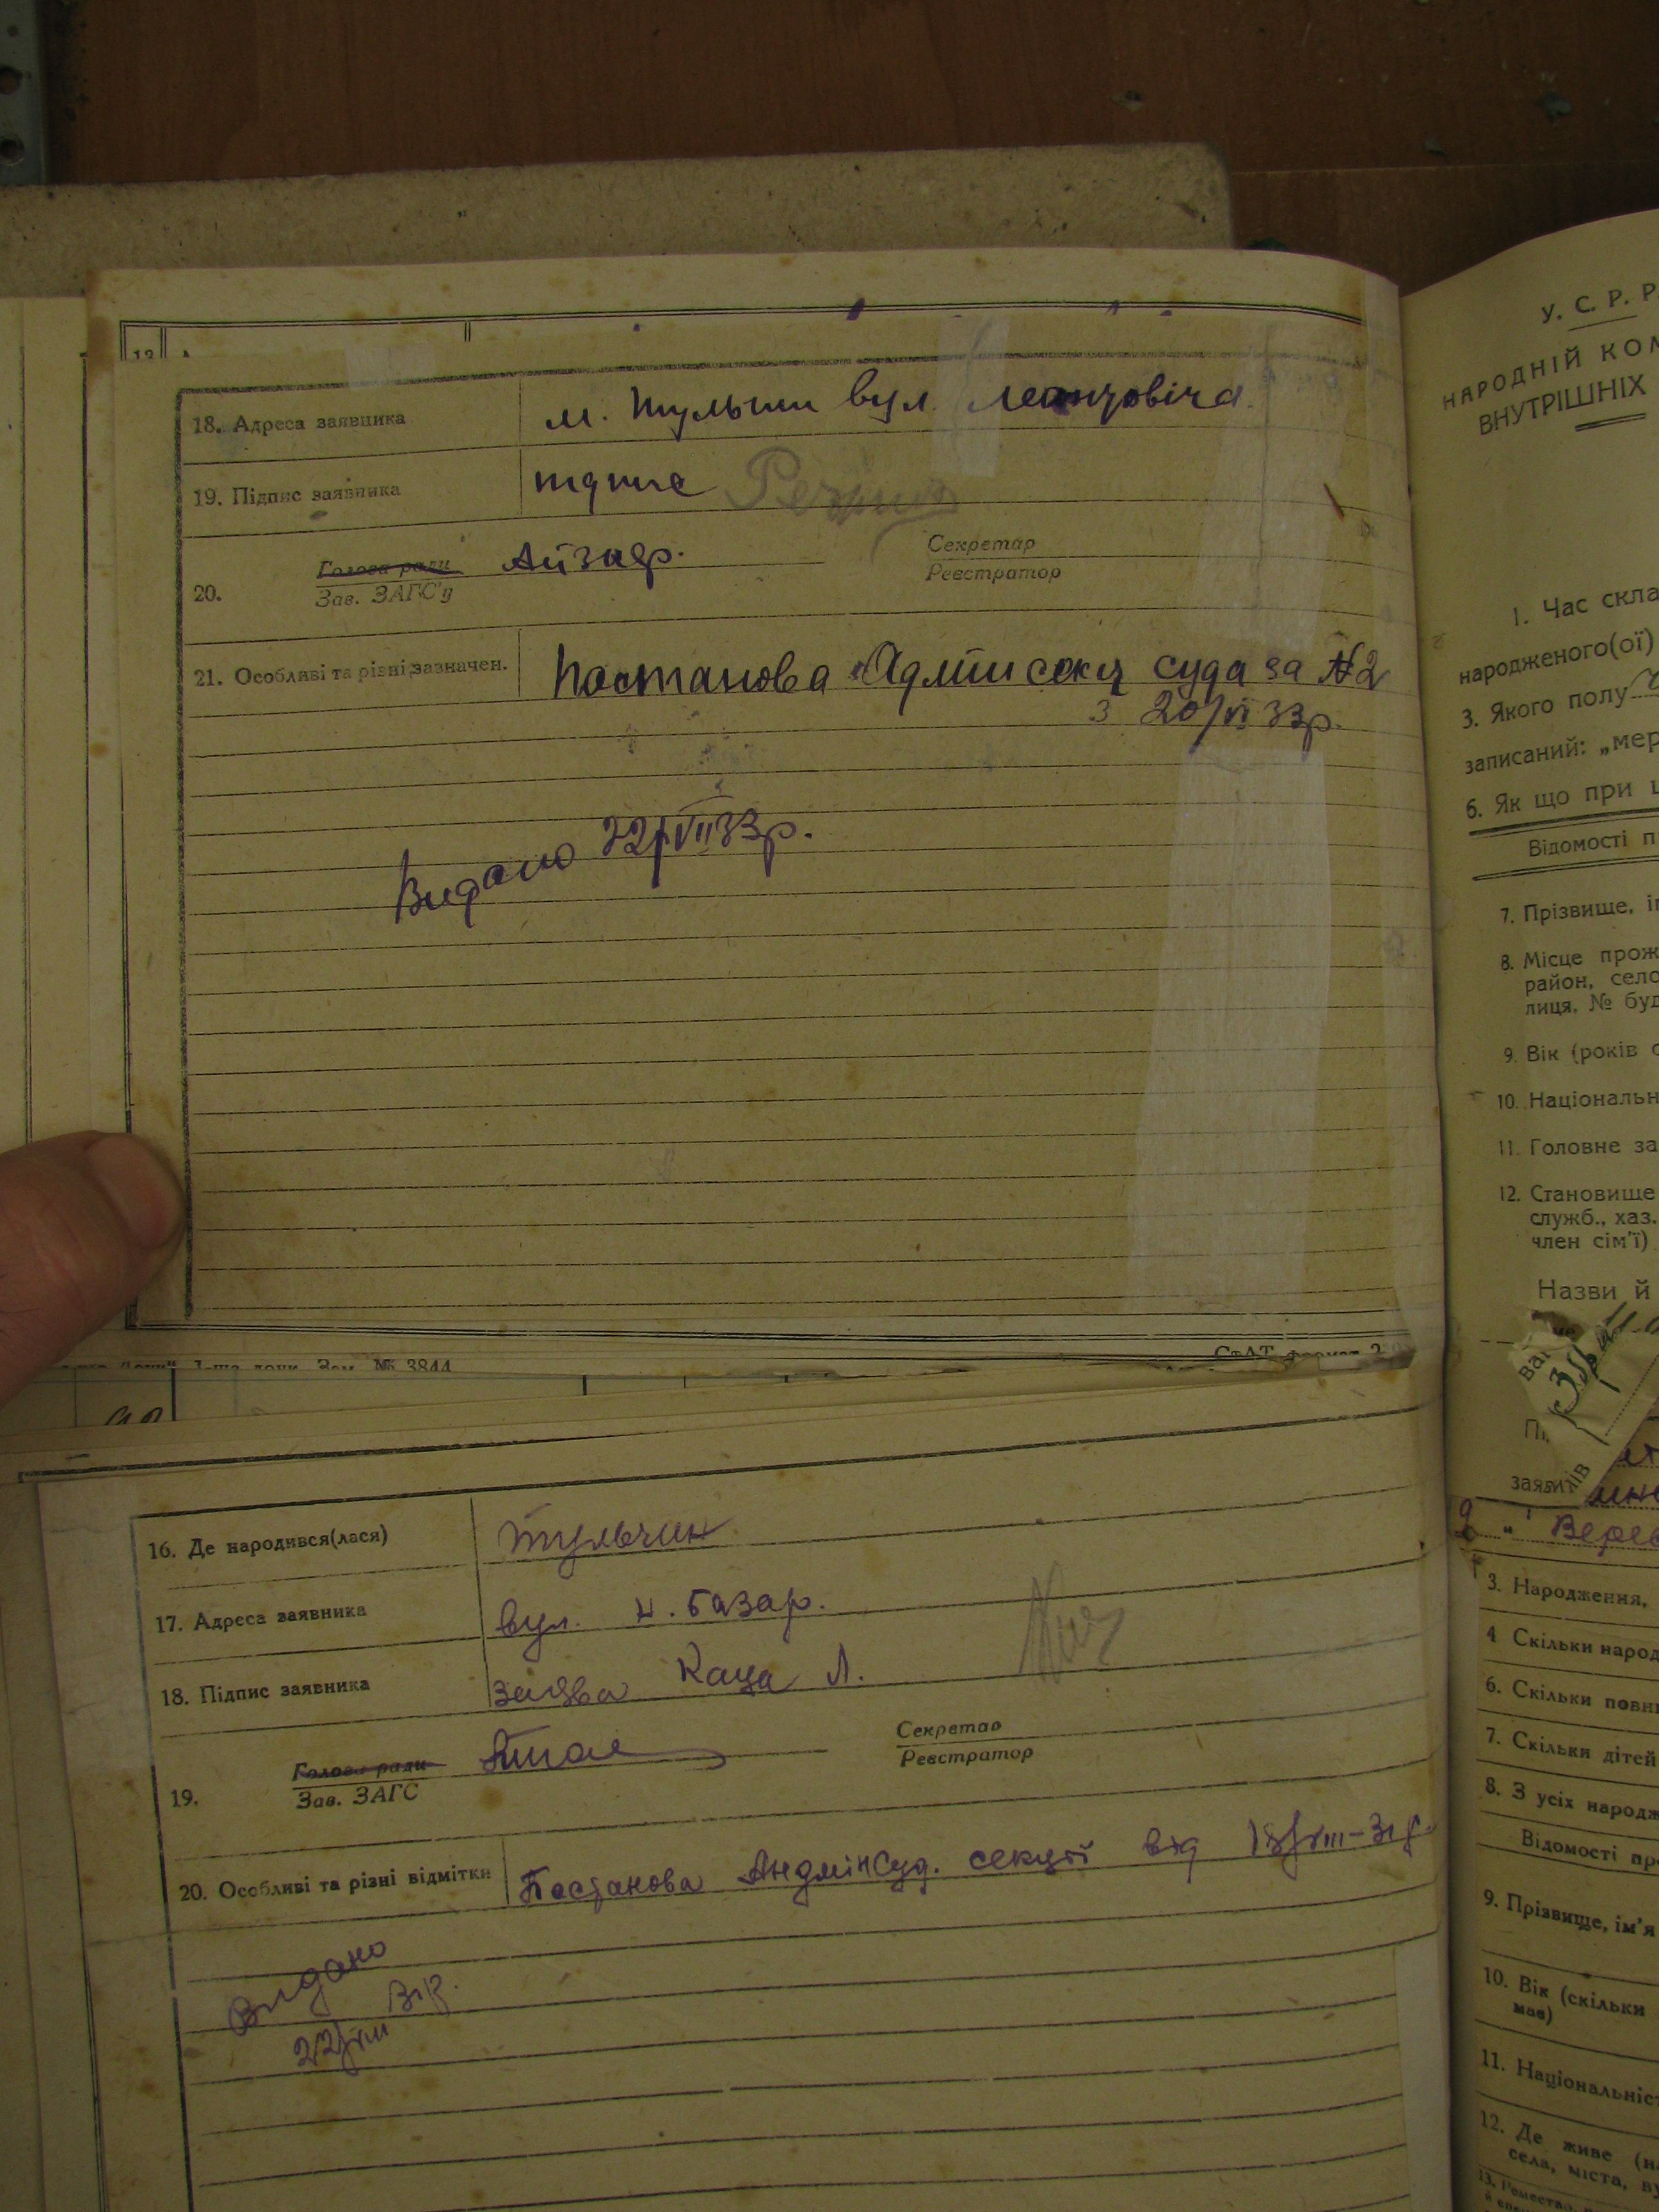 13
18. Адреса заявника м. Тульчин вул. Леантовіча
19. Підпис заявника підпис
20. Голова ради Секретар
Зав. ЗАГС'у Реєстратор
21. Особливі та різні зазначен. Постанова Адмін секц суда за №2
з 20/VI 33р.
Видано 22/VII 33р.
Зам. № 3844
16. Де народився(лася) Тульчин
17. Адреса заявника вул. Н. Базар.
18. Підпис заявника заява Каца Л.
19. Голова ради Секретар
Зав. ЗАГС Реєстратор
20. Особливі та різні відмітки Постанова Андмінсуд. секції від
Видано
22/VIII 31р.
У. С. Р. Р.
НАРОДНІЙ КОМ
ВНУТРІШНІХ
1. Час скла
народженого(ої)
3. Якого полу
записаний: „мер
6. Як що при ц
Відомості п
7. Прізвище, ім
8. Місце прож
район, село
лиця, № буд
9. Вік (років с
10. Національн
11. Головне за
12. Становище
служб., хаз.
член сім'ї)
Назви й
заяви
3. Народження,
4 Скільки народ
6. Скільки повни
7. Скільки дітей
8. З усіх народж
Відомості пр
9. Прізвище, ім'я
10. Вік (скільки
має)
11. Національніст
12. Де живе (на
села, міста, ву